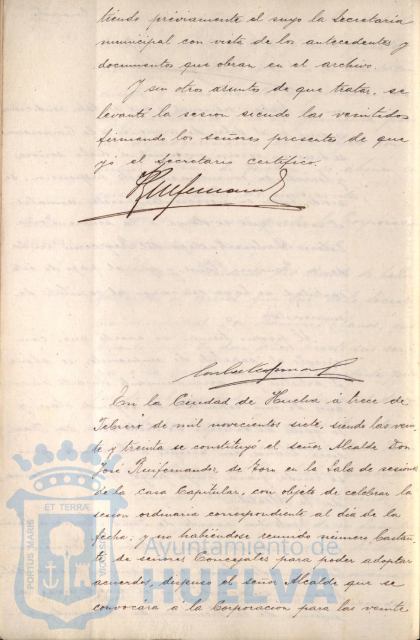 tiendo préviamente el suyo la Secretaria
municipal con vista de los antecedentes y
documentos que obran en el archivo.
Y sin otros asuntos de que tratar, se
levantó la sesion siendo las veintidos
firmando los señores presentes de que
yó el Secretario certifico.
En la Ciudad de Huelva á trece de
Febrero de mil novecientos siete, siendo las vein-
te y treinta se constituyó el señor Alcalde Don
José Ruifernandez de Torn en la Sala de sesiones
de la casa Capitular, con objeto de celebrar la
sesion ordinaria correspondiente al dia de la
fecha; y no habiendose reunido número bastan-
te de señores Concejales para poder adoptar
acuerdos, dispuso el señor Alcalde que se
convocara á la Corporacion para las veinte
PORTUS MARIS
ET TERRÆ
Ayuntamiento de
HUELVA